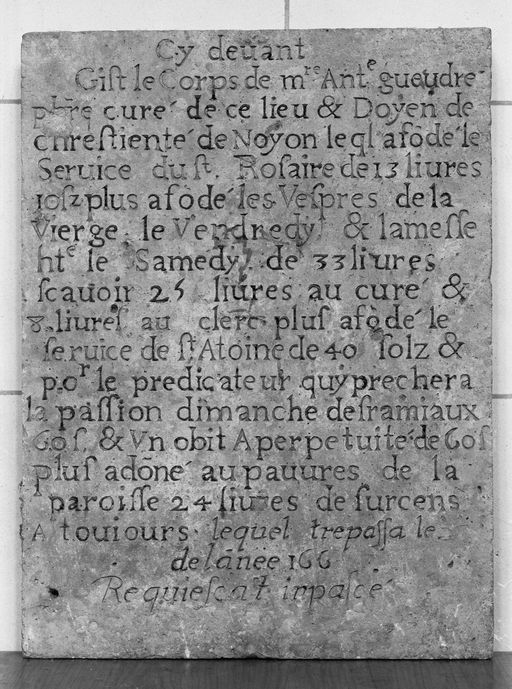 Cy deuant
Gist le Corps de mre Ante gueudre
pbre cure de ce lieu & Doyen de
chrestiente de Noyon leql a fõde le
Seruice du st. Rosaire de 13 liures
10 sz plus a fõdé les Vespres de la
Vierge. le Vendredy & la messe
hte le Samedy de 33 liures
scauoir 25 liures au curé &
8. liures au clerc plus a fõdé le
seruice de st Atoine de 40 solz &
por le predicateur quy prechera
la passion dimanche des ramiaux
60 s. & Vn obit A perpetuité de 60 s
plus a dõné au pauures de la
paroisse 24 liures de surcens
A touiours lequel trepassa le
de lãnee 166
Requiescat in pasce